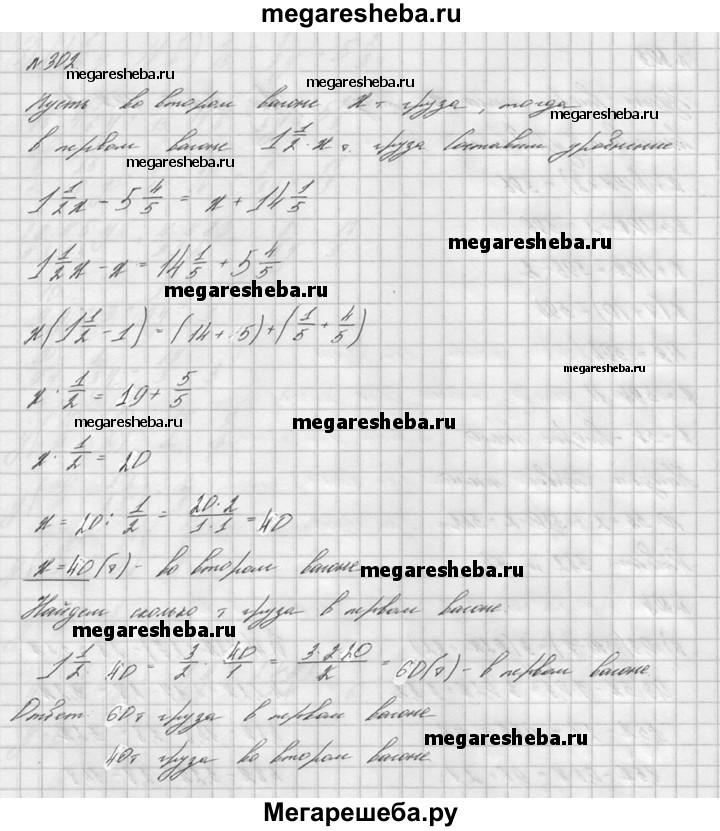 megaresheba.ru
№ 302
megaresheba.ru
megaresheba.ru
Пусть во втором вагоне x т груза, тогда
в первом вагоне 1 1/2 · x т. груза Составим уравнение:
megaresheba.ru
1 1/2 x - 5 4/5 = x + 14 1/5
megaresheba.ru
1 1/2 x - x = 14 1/5 + 5 4/5
megaresheba.ru
x(1 1/2 - 1) = (14 + 5) + (1/5 + 4/5)
megaresheba.ru
x · 1/2 = 19 + 5/5
megaresheba.ru
megaresheba.ru
x · 1/2 = 20
x = 20 : 1/2 = 20·2/1·1 = 40
x = 40 (т) - во втором вагоне
megaresheba.ru
Найдем сколько т груза в первом вагоне:
megaresheba.ru
1 1/2 · 40 = 3/2 · 40/1 = 3·2·20/2 = 60 (т) - в первом вагоне.
Ответ. 60 т груза в первом вагоне
megaresheba.ru
40 т груза во втором вагоне
Мегарешеба.ру